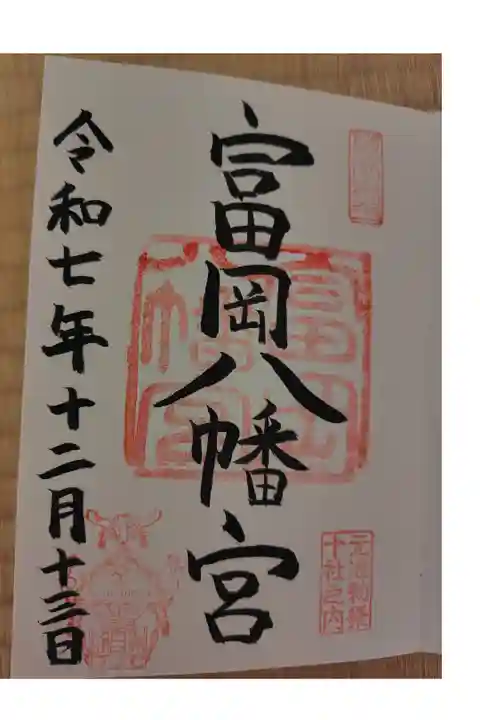 元准勅祭
十社之内
富岡八幡宮
令和七年十二月十三日